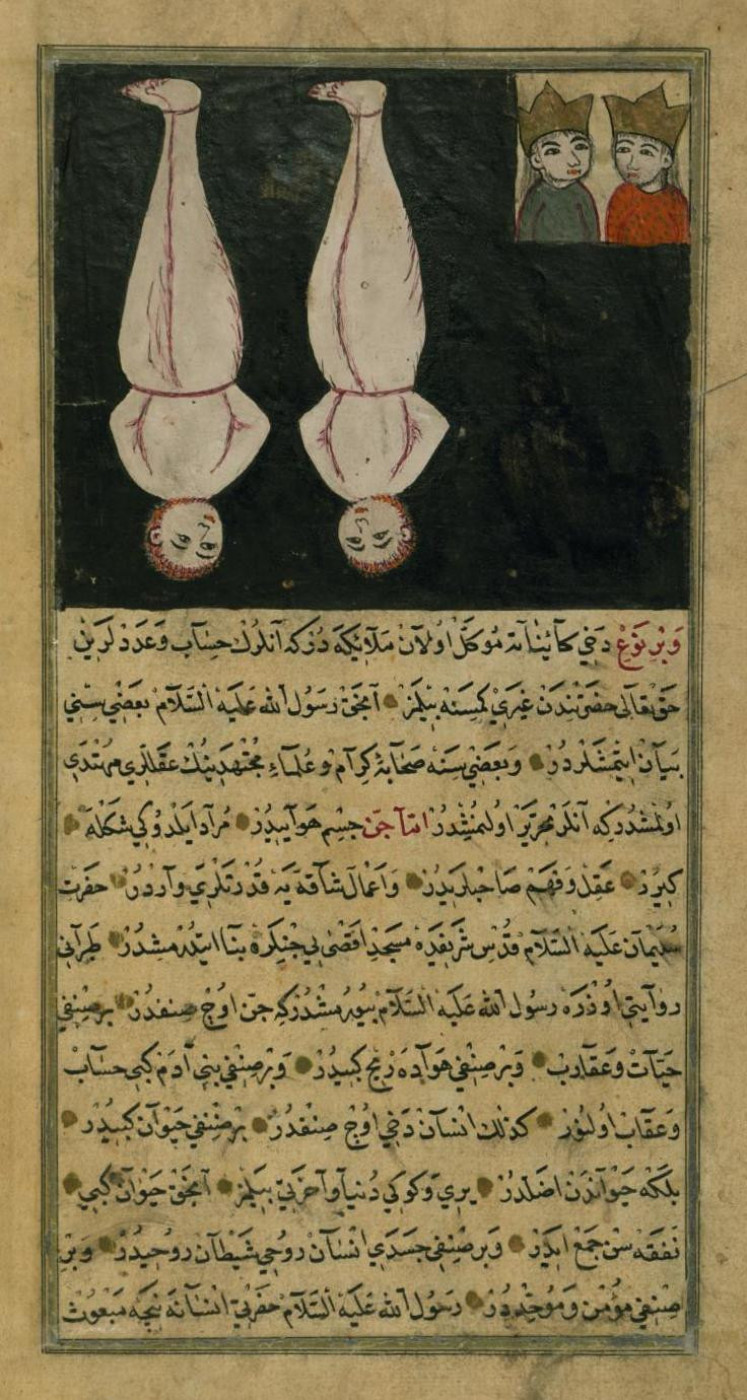 وَبِر نَوْع دَخِي كَآئِنَاتَه مُوَكَّل اُولَان مَلَآئِكَه دُرْكِه آنْلَرُك حِسَاب وَعَدَدْلَرِين
حَق تَعَالَى حَضْرَتِنْدَن غَيْرِي كِمْسَنَه بِيلْمَز آنجَق رَسُول اللّٰه عَلَيْه السَّلَام بَعْضِي سِنِي
بَيَان اِيتْمِشْلَرْدُر وَبَعْضِي سِنَه صَحَابَهٔ كِرَام وَعُلَمَاءِ مُجْتَهِدِينُك عَقْلْلَرِي مُهْتَدِي
اُولْمِشْدُركِه آنْلَر تَحْرِير اُولِنْمِشْدُر امّا جِن جِسْم هَوَايِيدُر مُرَاد ايلدوكي شكله
كِيرَر عَقِل وَفَهِم صَاحِبْلَرِيدُر وَاَعْمَال شَاقَّه يَه قُدْرَتْلَرِي وَارْدُر حَضْرَت
سُلَيْمَان عَلَيْه السَّلَام قُدْس شَرِيفْدَه مَسْجِد اَقْصَى يِي جِنْلِرَه بِنَا اِيتْدُرْمِشْدُر طَبَرَانِي
رِوَايَتِي اُوزَرَه رَسُول اللّٰه عَلَيْه السَّلَام بُيُورْمِشْدُركِه جِن اُوچ صِنِفْدُر بِر صِنِفِي
حَيَّات وَعَقَارِب وَبِر صِنِفِي هَوَادَه رِيح كِبِيدُر وَبِر صِنِفِي بَنِي آدَم كِبِي حِسَاب
وَعِقَاب اُولُنُور كَذٰلِك اِنْسَان دَخِي اُوچ صِنِفْدُر بِر صِنِفِي حَيَوَان كِبِيدُر
بَلْكَه حَيَوَانْدَن اَضَلْدُر يِرِي وَكُوكِي دُنْيَا وَآخِرَتِي بِيلْمَز آنجَق حَيَوَان كِبِي
نَفَقَه سِن جَمْع اِيدَر وَبِر صِنِفِي جَسَدِي اِنْسَان رُوحِي شَيْطَان رُوحِيدُر وَبِر
صِنِفِي مُؤْمِن وَمُوَحِّددُر رَسُول اللّٰه عَلَيْه السَّلَام حَضْرَتِي اِنْسَانَه نِيجَه مَبْعُوث